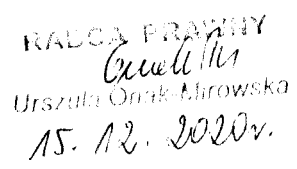 RADCA PRAWNY
Urszula Onak-Mirowska
15. 12. 2020r.